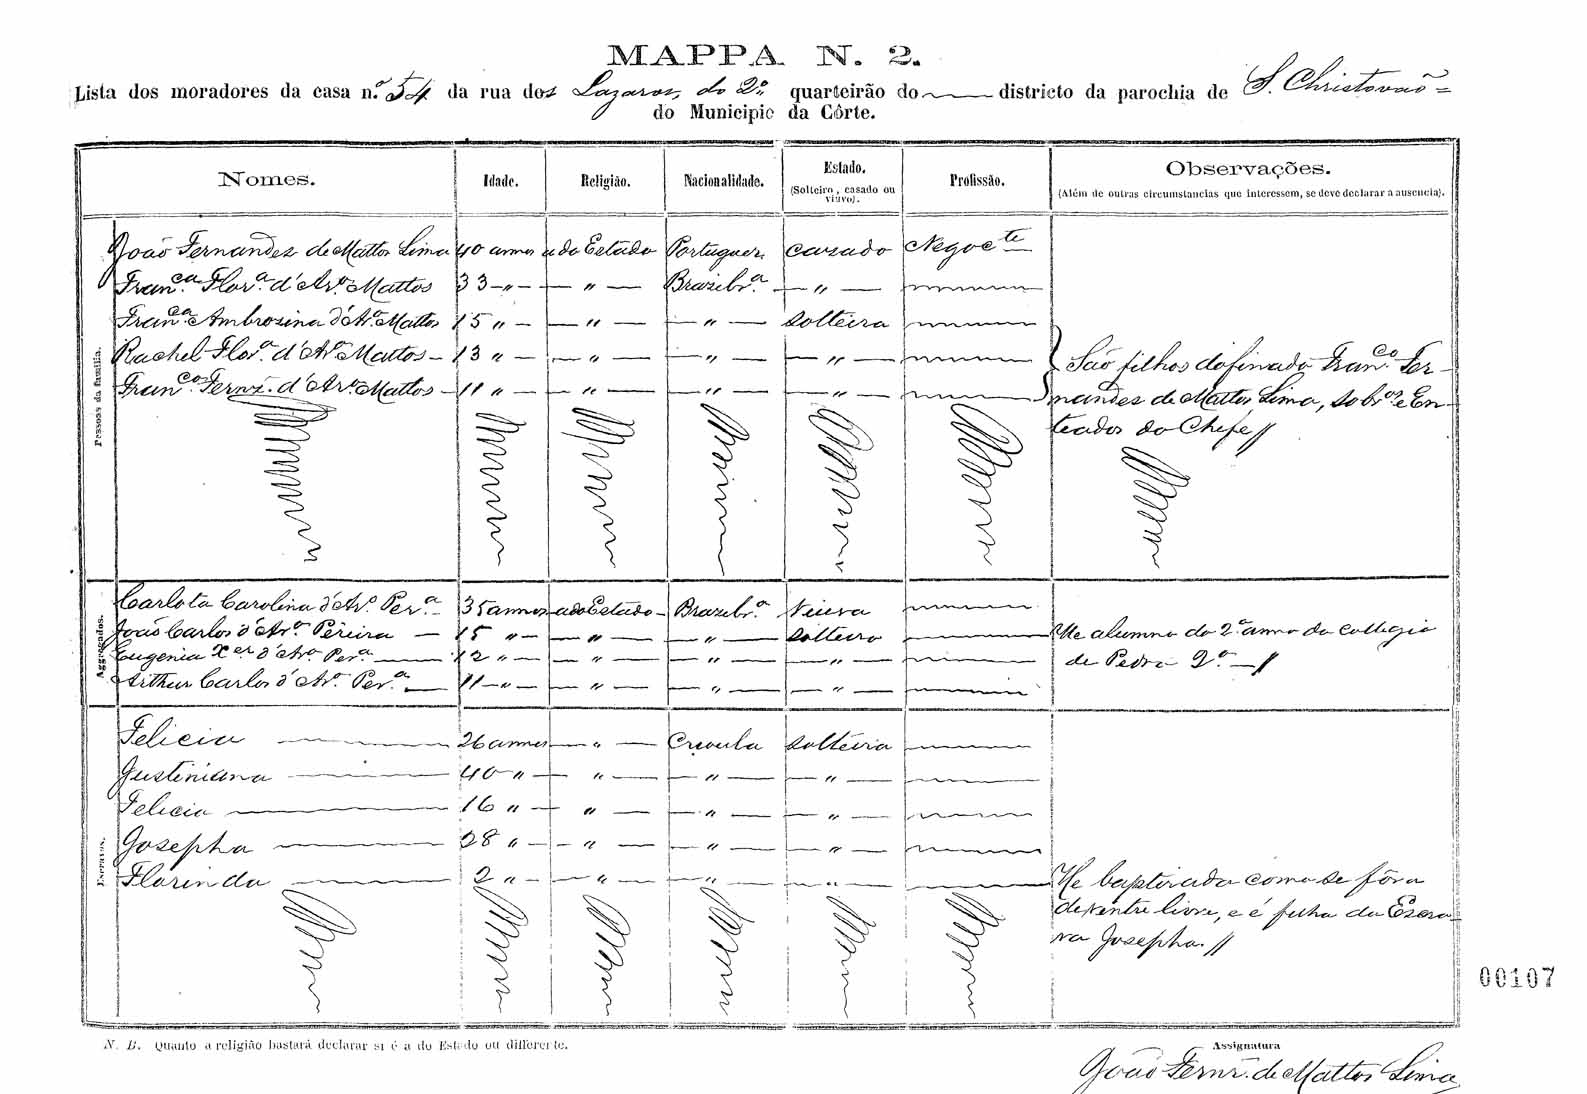 MAPPA N. 2.
Lista dos moradores da casa n.º 54 da rua dos Lazaros, do 2.º quarteirão do districto da parochia de S. Christovaõ =
do Municipio da Côrte.
Nomes. Idade. Religião. Nacionalidade. Estado. (Solteiro, casado ou viuvo). Profissão. Observações. (Além de outras circumstancias que interessem, se deve declarar a ausencia).
Pessoas da familia.
João Fernandes de Mattos Lima 40 annos a do Estado Portuguez cazado Negoc.te
Fran.ca Flor.a d'Ar.o Mattos 33 — " — — " — Brazilr.a — " —
Fran.ca Ambrosina d'Ar.o Mattos 15 " — — " — — " — solteira
Rachel Flor.a d'Ar.o Mattos — 13 " — — " — — " — — " —
Fran.co Fernz. d'Ar.o Mattos — 11 " — — " — — " — — " —
São filhos do finado Fran.co Fer-
nandes de Mattos Lima, sobr.os e En-
teados do Chefe //
Aggregados.
Carlota Carolina d'Ar.o Per.a 35 annos a do Estado — Brazilr.a Viuva
João Carlos d'Ar.o Pereira — 15 " — — " — — " — solteiro He alumno do 2.º anno do Collegio
Eugenia X.er d'Ar.o Per.a 12 " — — " — — " — — " — de Pedro 2.º — //
Arthur Carlos d'Ar.o Per.a — 11 — " — — " — — " — — " —
Escravos.
Felicia 26 annos — " — Crioula solteira
Justiniana 40 " — — " — — " — — " —
Felicia 16 " — — " — — " — — " —
Josepha 28 " — — " — — " — — " —
Florinda 2 " — — " — — " — — " — He baptizada como se fôra
de ventre livre, e é filha da Escra-
va Josepha. //
00107
N. B. Quanto a religião bastará declarar si é a do Estado ou differente.
Assignatura
João Fernz. de Mattos Lima